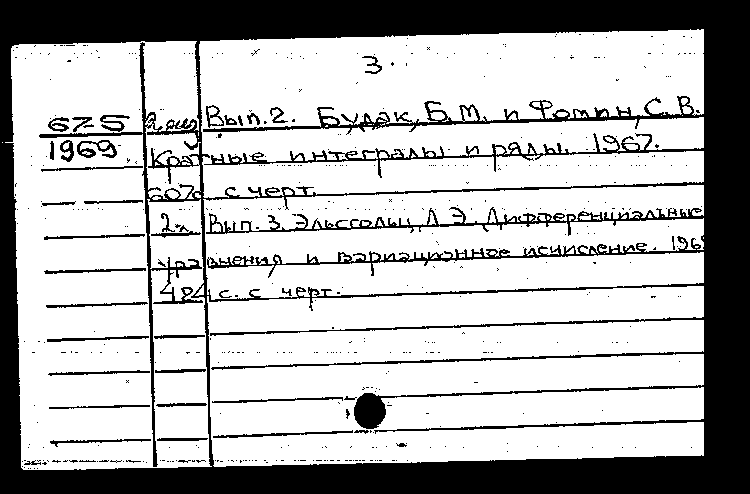 3.
67-5 2 экз Вып.2. Будак, Б.М. и Фомин, С.В.
1969 Кратные интегралы и ряды. 1967.
607с с черт.
2х Вып. 3. Эльсгольц, Л.Э. Дифференциальные
уравнения и вариационное исчисление. 1969
424 с. с черт.